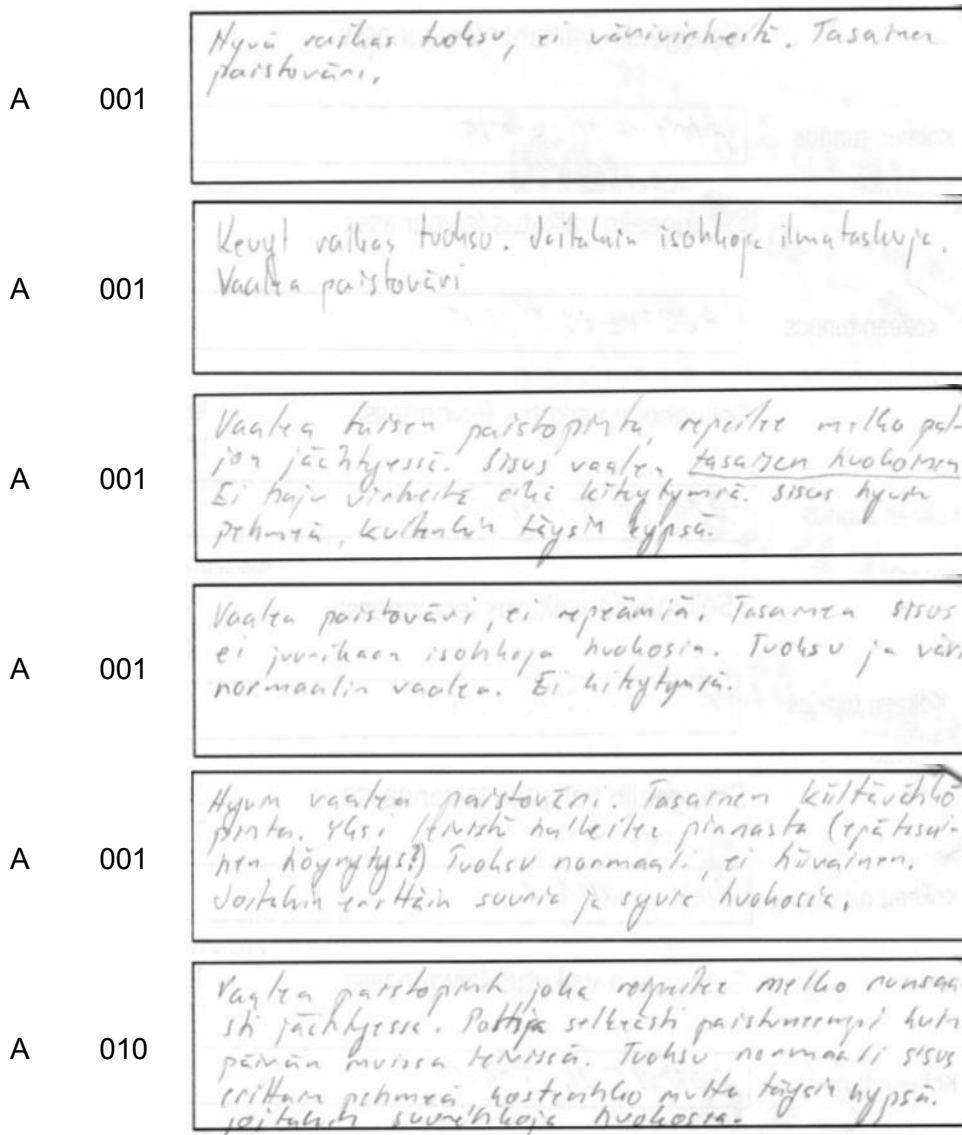 A 001
Hyvä raikas tuoksu, ei värivirheitä. Tasainen
paistoväri.
A 001
Kevyt raikas tuoksu. Joitakin isohkoja ilmataskuja.
Vaalea paistoväri
A 001
Vaalea paistopinta, repeilee melko pal-
jon jäähtyessä. Sisus vaalea, tasaisen huokoinen
Ei haju virheitä eikä kitkytymiä. Sisus hyvin
pehmeä, kuitenkin täysin kypsä.
A 001
Vaalea paistoväri, ei repeämiä. Tasainen sisus
ei juurikaan isohkoja huokosia. Tuoksu ja väri
normaalin vaalea. Ei
A 001
Hyvin vaalea paistoväri. Tasainen kiiltävähkö
pinta. Yksi leivistä halkeilee pinnasta (epätasai-
nen höyrytys?) Tuoksu normaali, ei hiivainen.
Joitakin erittäin suuria ja syviä huokosia.
A 010
Vaalea paistopinta joka repeilee melko runsaa-
sti jäähtyessä. Pohja selkeästi paistuneempi kuin
päivän muissa leivissä. Tuoksu normaali sisus
erittäin pehmeä kosteahko mutta täysin kypsä.
joitakin suurehkoja huokosia.